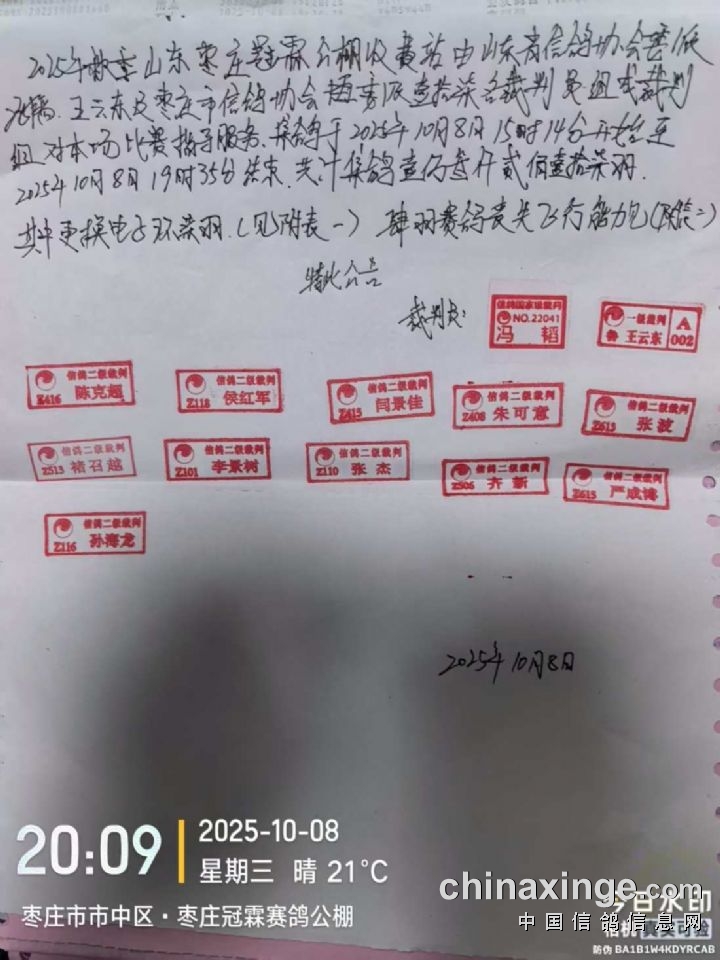 2025年秋季山东枣庄冠霖公棚收费站由山东省信鸽协会委派
冯韬、王云东及枣庄市信鸽协会 委派壹拾柒名裁判员组成裁判
组对本场比赛指导服务。集鸽于2025年10月8日15时14分开始至
2025年10月8日19时35分结束,共计集鸽壹仟贰佰壹拾柒羽.
其中更换电子环柒羽.(见附表一)肆羽赛鸽丧失飞行能力
特此公告
裁判长:
信鸽国家级裁判
NO.22041
冯 韬
一级裁判
鲁 王云东
A
002
信鸽二级裁判
Z416 陈克超
信鸽二级裁判
Z118 侯红军
信鸽二级裁判
Z415 闫景佳
信鸽二级裁判
Z408 朱可意
信鸽二级裁判
Z613 张波
信鸽二级裁判
Z513 褚召越
信鸽二级裁判
Z101 李景树
信鸽二级裁判
Z110 张杰
信鸽二级裁判
Z506 齐新
信鸽二级裁判
Z615 严成博
信鸽二级裁判
Z116 孙海龙
2025年10月8日
20:09
2025-10-08
星期三 晴 21°C
枣庄市市中区·枣庄冠霖赛鸽公棚
chinaxinge.com
中国信鸽信息网
今日水印
相机 真实可验
防伪 BA1B1W4KDYRCAB